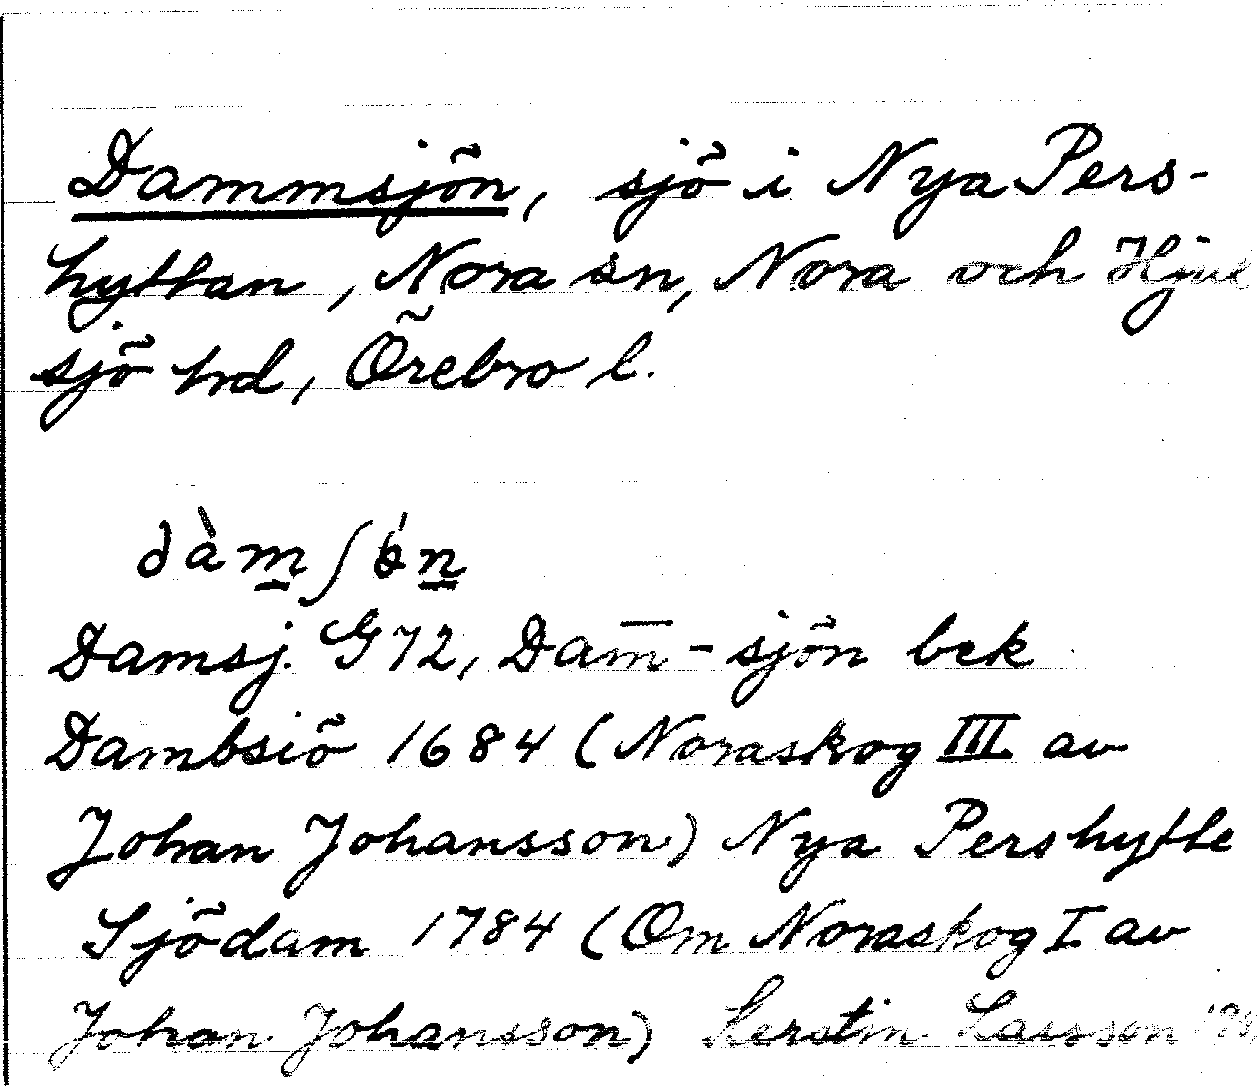 Dammsjön, sjö i Nya Pers-
hyttan, Nora sn, Nora och Hjul
sjö hrd, Örebro l.
dàmʃǿn
Damsj. G72, Dam̅-sjön bek
Dambsiö 1684 (Noraskog III av
Johan Johansson) Nya Pershytte
Sjödam 1784 (Om Noraskog I av
Johan Johansson) Kerstin Larsson